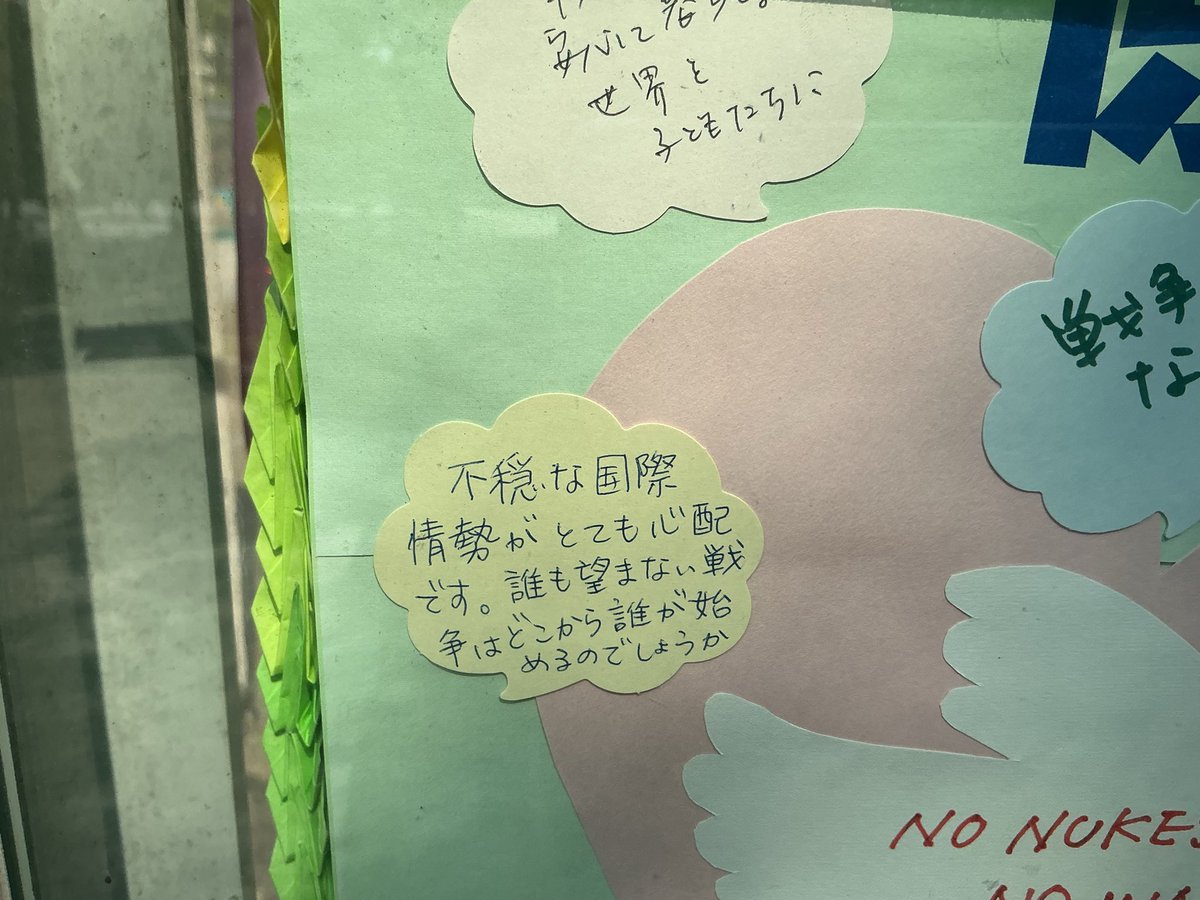 安心して暮らせる
世界を
子どもたちに
戦争
な
不穏な国際
情勢がとても心配
です。誰も望まない戦
争はどこから誰が始
めるのでしょうか
NO NUKES
NO WA